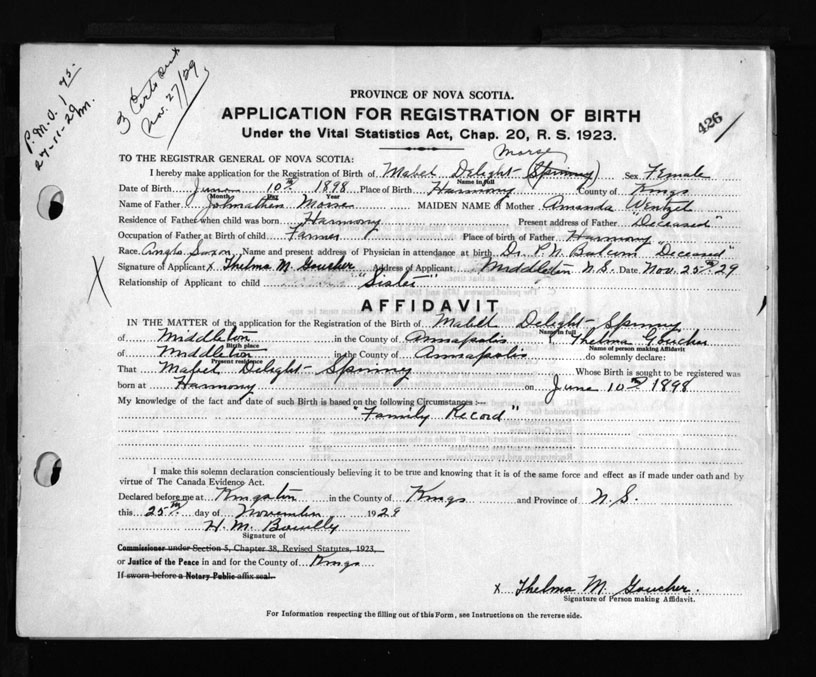 P.M.O. 1
27-11-29
3 Certs
Nov. 27/29
426
PROVINCE OF NOVA SCOTIA.
APPLICATION FOR REGISTRATION OF BIRTH
Under the Vital Statistics Act, Chap. 20, R. S. 1923.
TO THE REGISTRAR GENERAL OF NOVA SCOTIA:
Morse
I hereby make application for the Registration of Birth of Mabel Delight (Spinney) Sex Female
Name in full
Date of Birth June 10th 1898 Place of Birth Harmony County of Kings
Month Day Year
Name of Father Johnathan Morse MAIDEN NAME of Mother Amanda Wentzel
Residence of Father when child was born Harmony Present address of Father "Deceased"
Occupation of Father at Birth of child Farmer Place of birth of Father Harmony
Race Anglo Saxon Name and present address of Physician in attendance at birth Dr. P. N. Balcom "Deceased"
Signature of Applicant x Thelma M. Goucher Address of Applicant Middleton N.S. Date Nov. 25th 29
X
Relationship of Applicant to child "Sister"
AFFIDAVIT
IN THE MATTER of the application for the Registration of the Birth of Mabel Delight Spinney
Name in full
of Middleton in the County of Annapolis Thelma Goucher
Birth place Name of person making Affidavit
of Middleton in the County of Annapolis do solemnly declare:
Present residence
That Mabel Delight Spinney Whose Birth is sought to be registered was
born at Harmony on June 10th 1898
My knowledge of the fact and date of such Birth is based on the following Circumstances :—
"Family Record"
I make this solemn declaration conscientiously believing it to be true and knowing that it is of the same force and effect as if made under oath and by
virtue of The Canada Evidence Act.
Declared before me at Kingston in the County of Kings and Province of N.S.
this 25th day of November 1929
H. M.
Signature of
Commissioner under Section 5, Chapter 38, Revised Statutes, 1923,
or Justice of the Peace in and for the County of Kings
If sworn before a Notary Public affix seal.
x Thelma M. Goucher.
Signature of Person making Affidavit.
For Information respecting the filling out of this Form, see Instructions on the reverse side.